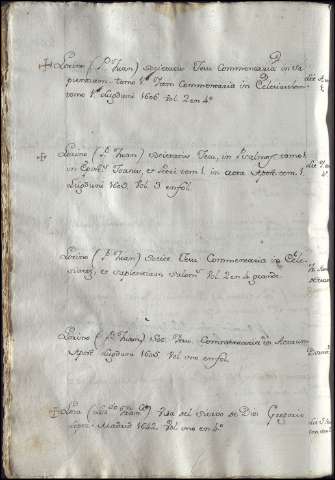 Lorino (P.e Juan) Societatis Jesu Commentaria in Sa
pientiam tomo 1.º Item Commentaria in Eclesiasten
tomo 1.º Lugduni 1606 Vol 2 en 4.º
Lorino (P.e Juan) Societatis Jesu, in Psalmos tomo 1.
in Epist. Joanis, et Petri tom 1. in acta Apost. tom 1.
Lugduni 1605. Vol 3 en fol.
Lorino (P.e Juan) Societ. Jesu Commentaria in Ecle
siastes, et Sapientiam Salom.s Vol 2 en 4 grande.
Lorino (P.e Juan) Soc. Jesu. Commentaria in Actuum
Apost. Lugduni 1605 Vol uno en fol.
Losa (Lic.do Fran.co) Vida del Siervo de Dios Gregorio
Lopez. Madrid 1642 Vol uno en 4.º